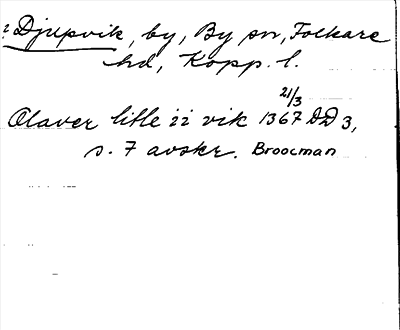 ? Djupvik, by, By sn, Folkare
hd, Kopp. l.
21/3
Olaver litle ii vik 1367 DD 3,
s. 7 avskr. Broocman